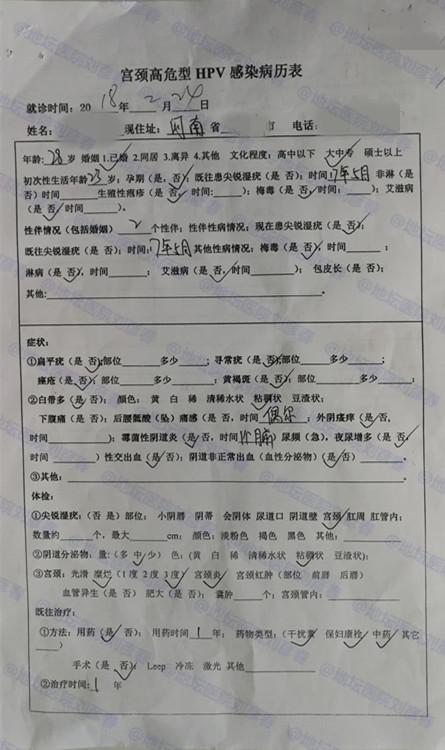 宫颈高危型 HPV 感染病历表
就诊时间：2018年2月24日
姓名： 现住址：河南省 电话：
年龄：28岁 婚姻 1.已婚 2.同居 3.离异 4.其他 文化程度：高中以下 大中专 硕士以上
初次性生活年龄23岁；孕期（是，否）；既往患尖锐湿疣（是 否）；时间17年5月 非淋（是
否）时间 生殖性疱疹（是 否，时间： ）；梅毒（是 否，时间： ）；艾滋病
（是 否 时间 ）。
性伴情况（包括婚姻）2个性伴；性伴性病情况：现在患尖锐湿疣（是 否）；
既往尖锐湿疣（是 否）；时间：17年5月 其他性病情况：梅毒（是 否），时间 ；
淋病（是 否），时间 ； 艾滋病（是 否，时间 ）； 包皮长（是 否）；
其他： 。
症状：
①扁平疣（是 否）；部位 多少 ；寻常疣（是 否）；部位 多少 ；
痤疮（是 否）；部位 多少 ；黄褐斑（是 否）；部位 多少 ；
②白带多（是 否）； 颜色： 黄 白 稀 清稀水状 粘稠状 豆渣状；
下腹痛（是 否）；后腰骶酸（坠）痛感（是 否，时间 偶尔 ；外阴瘙痒（是 否，
时间 ）；霉菌性阴道炎（是 否，时间 ）尿频（急），夜尿增多（是 否，
时间 ）性交出血（是 否）；阴道非正常出血（血性分泌物）（是 否） 。
③其他：
体检：
①尖锐湿疣：（否 是）部位： 小阴唇 阴蒂 会阴体 尿道口 阴道壁 宫颈 肛周 肛管内；
数量约 个，最大 cm； 颜色：淡粉色 褐色 黑色 其他：
②阴道分泌物：量：（多 中 少） 色：（黄 白 稀 清稀水状 粘稠状 豆渣状）；
③宫颈：光滑 糜烂（1度 2度 3度） 宫颈炎 宫颈红肿（部位 前唇 后唇）
血管异生（是 否） 肥大（是 否）； 囊肿 个；宫颈管内：
既往治疗：
①方法：用药（是 否）；用药时间1年；药物类型：（干扰素 保妇康栓 中药 其它
）
手术（是 否）； Leep 冷冻 激光 其他
②治疗时间：1 年
@地坛医院刘医春